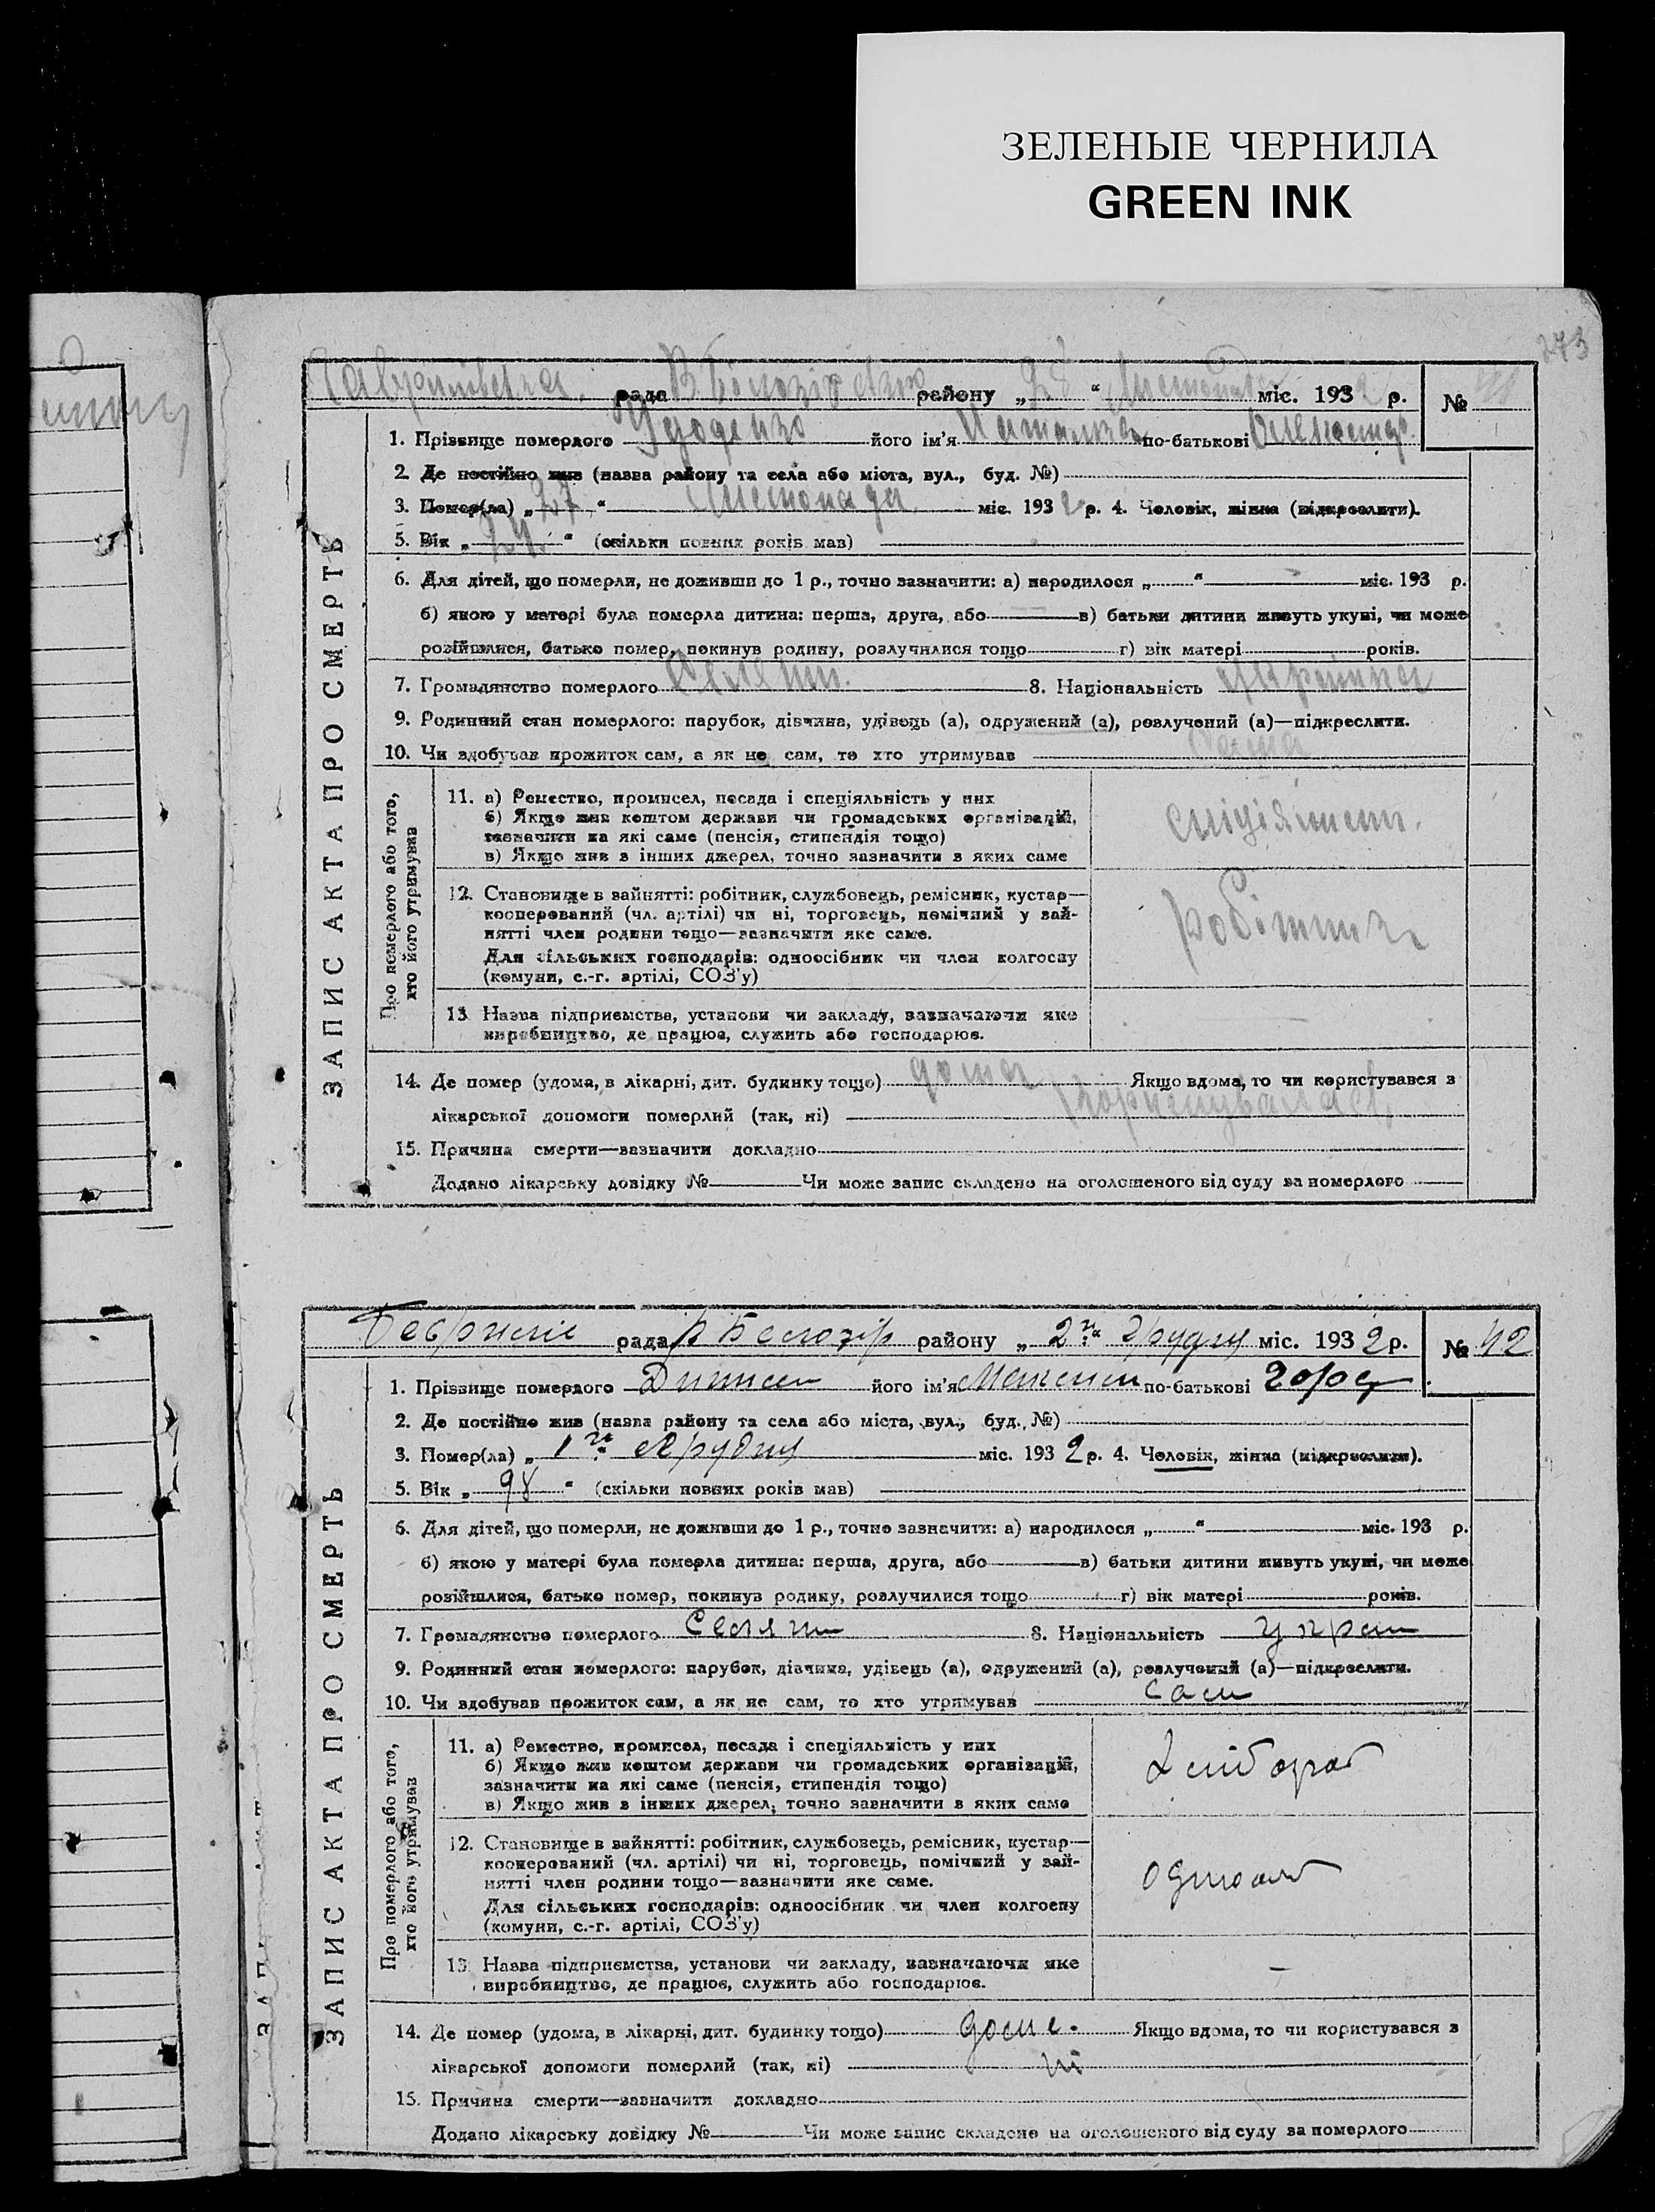 ЗЕЛЕНЫЕ ЧЕРНИЛА
GREEN INK
273
рада району „ 28 “ міс. 1932 р. №
ЗАПИС АКТА ПРО СМЕРТЬ
1. Прізвище померлого його ім'я по-батькові
2. Де постійно жив (назва району та села або міста, вул., буд. №)
3. Помер(ла) „ 27 “ Листопада міс. 1932 р. 4. Чоловік, жінка (підкреслити).
5. Вік „ “ (скільки повних років мав)
6. Для дітей, що померли, не доживши до 1 р., точно зазначити: а) народилося „ “ міс. 193 р.
б) якою у матері була померла дитина: перша, друга, або в) батьки дитини живуть укупі, чи може
розійшлися, батько помер, покинув родину, розлучилися тощо г) вік матері років.
7. Громадянство померлого Селянин. 8. Національність
9. Родинний стан померлого: парубок, дівчина, удівець (а), одружений (а), розлучений (а)—підкреслити.
10. Чи здобував прожиток сам, а як не сам, то хто утримував сама
Про померлого або того, хто його утримував
11. а) Ремество, промисел, посада і спеціяльність у них
б) Якщо жив коштом держави чи громадських організацій,
зазначити на які саме (пенсія, стипендія тощо)
в) Якщо жив з інших джерел, точно зазначити з яких саме
12. Становище в зайнятті: робітник, службовець, ремісник, кустар—
кооперований (чл. артілі) чи ні, торговець, помічний у зай-
нятті член родини тощо—зазначити яке саме.
Для сільських господарів: одноосібник чи член колгоспу
(комуни, с.-г. артілі, СОЗ'у)
робітник
13. Назва підприємства, установи чи закладу, зазначаючи яке
виробництво, де працює, служить або господарює.
14. Де помер (удома, в лікарні, дит. будинку тощо) дома Якщо вдома, то чи користувався з
лікарської допомоги померлий (так, ні) користувалась
15. Причина смерти—зазначити докладно
Додано лікарську довідку № Чи може запис складено на оголошеного від суду за померлого
рада району „ 2го “ Грудня міс. 1932 р. № 42
ЗАПИС АКТА ПРО СМЕРТЬ
1. Прізвище померлого його ім'я Максим по-батькові
2. Де постійно жив (назва району та села або міста, вул., буд. №)
3. Помер(ла) „ 1го Грудня міс. 1932 р. 4. Чоловік, жінка (підкреслити).
5. Вік „ 98 “ (скільки повних років мав)
6. Для дітей, що померли, не доживши до 1 р., точно зазначити: а) народилося „ “ міс. 193 р.
б) якою у матері була померла дитина: перша, друга, або в) батьки дитини живуть укупі, чи може
розійшлися, батько помер, покинув родину, розлучилися тощо г) вік матері років.
7. Громадянство померлого Селянин 8. Національність
9. Родинний стан померлого: парубок, дівчина, удівець (а), одружений (а), розлучений (а)—підкреслити.
10. Чи здобував прожиток сам, а як не сам, то хто утримував сам
Про померлого або того, хто його утримував
11. а) Ремество, промисел, посада і спеціяльність у них
б) Якщо жив коштом держави чи громадських організацій,
зазначити на які саме (пенсія, стипендія тощо)
в) Якщо жив з інших джерел, точно зазначити з яких саме
12. Становище в зайнятті: робітник, службовець, ремісник, кустар—
кооперований (чл. артілі) чи ні, торговець, помічний у зай-
нятті член родини тощо—зазначити яке саме.
Для сільських господарів: одноосібник чи член колгоспу
(комуни, с.-г. артілі, СОЗ'у)
13. Назва підприємства, установи чи закладу, зазначаючи яке
виробництво, де працює, служить або господарює.
14. Де помер (удома, в лікарні, дит. будинку тощо) дома. Якщо вдома, то чи користувався з
лікарської допомоги померлий (так, ні) ні
15. Причина смерти—зазначити докладно
Додано лікарську довідку № Чи може запис складено на оголошеного від суду за померлого